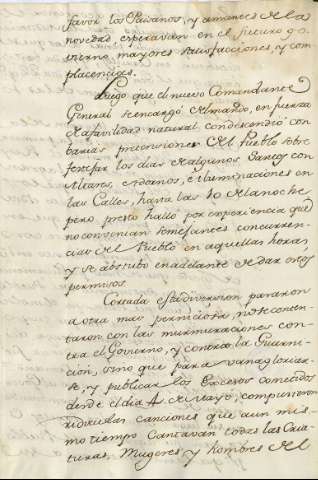 favor los Paisanos, y amantes de la
novedad esperavan en el futuro go-
vierno mayores satisfacciones, y com-
placencias.
Luego que el nuevo Comandante
General se encargó del mando, en fuerza
de afavilidad natural condescendió con
barias pretensiones del Pueblo sobre
festejar los dias de algunos Santos con
Altares, adornos, e Iluminaciones en
las Calles, hasta las 10 de la noche
pero presto halló por experiencia, que
no convenian semejantes concurren-
cias del Pueblo en aquellas horas,
y se abstubo en adelante de dar estos
permisos.
Cortada esta diversion pararon
a otra mas perniciosa, no se conten-
taron con las murmuraciones con-
tra el Govierno, y contra la Guarni-
cion, sino que para vanagloriar-
se, y publicar los Excesos cometidos
desde el dia 4 de Mayo, compusieron
ridiculas canciones que a un mis-
mo tiempo Cantavan todas las Cria-
turas, Mugeres y hombres del